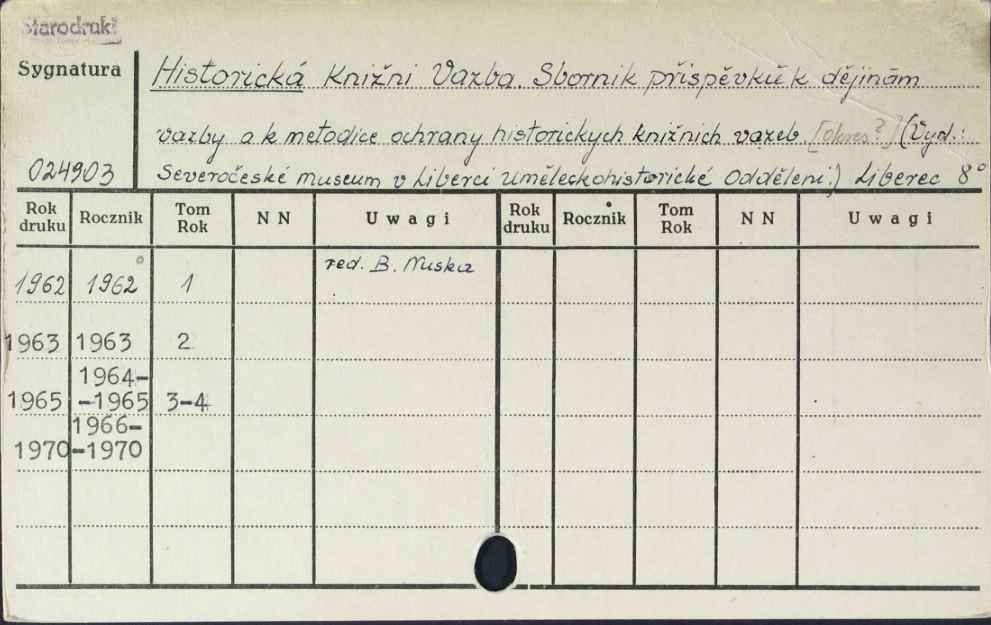 Starodruki
Sygnatura
Historická Knižni Vazba. Sbornik přispěvků k dějinám
vazby a k metodice ochrany historickych knižnich vazeb [okres?] (Vyd.:
024903
Severočeské museum v Liberci Uměleckohistorické Odděleni.) Liberec 8°
Rok druku Rocznik Tom Rok NN Uwagi Rok druku Rocznik Tom Rok NN Uwagi
red. B. Nuska
1962 1962 1
1963 1963 2
1964-
1965 -1965 3-4
1966-
1970 -1970